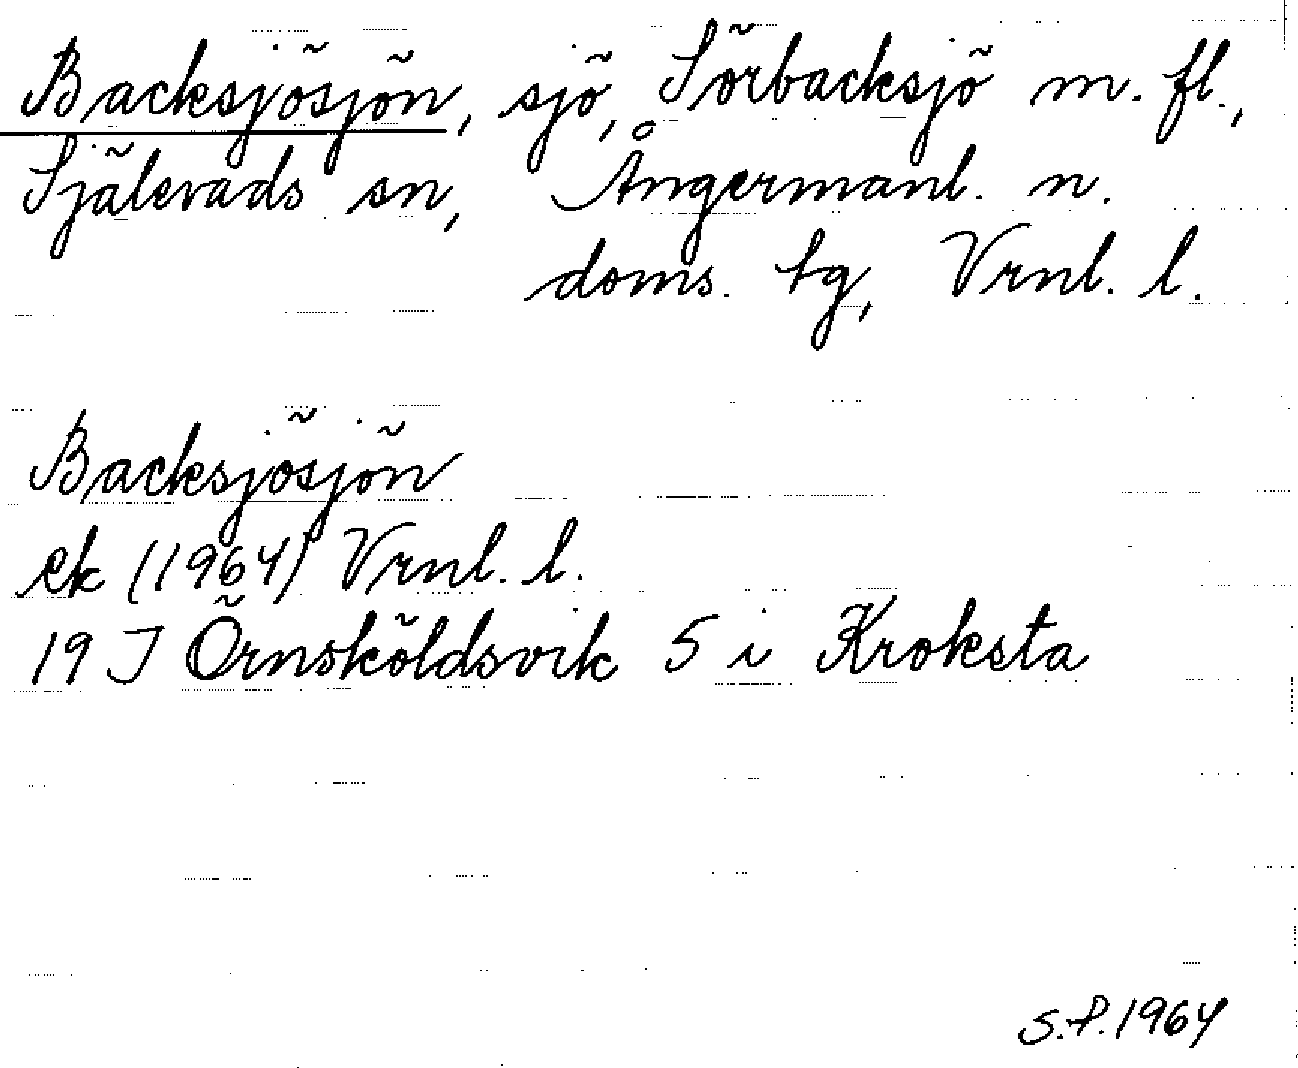 Backsjösjön, sjö, Sörbacksjö m. fl.,
Själevads sn, Ångermanl. n.
doms. tg, Vrnl. l.
Backsjösjön
ek (1964) Vrnl. l.
19 J Örnsköldsvik S i Kroksta
S.P. 1964